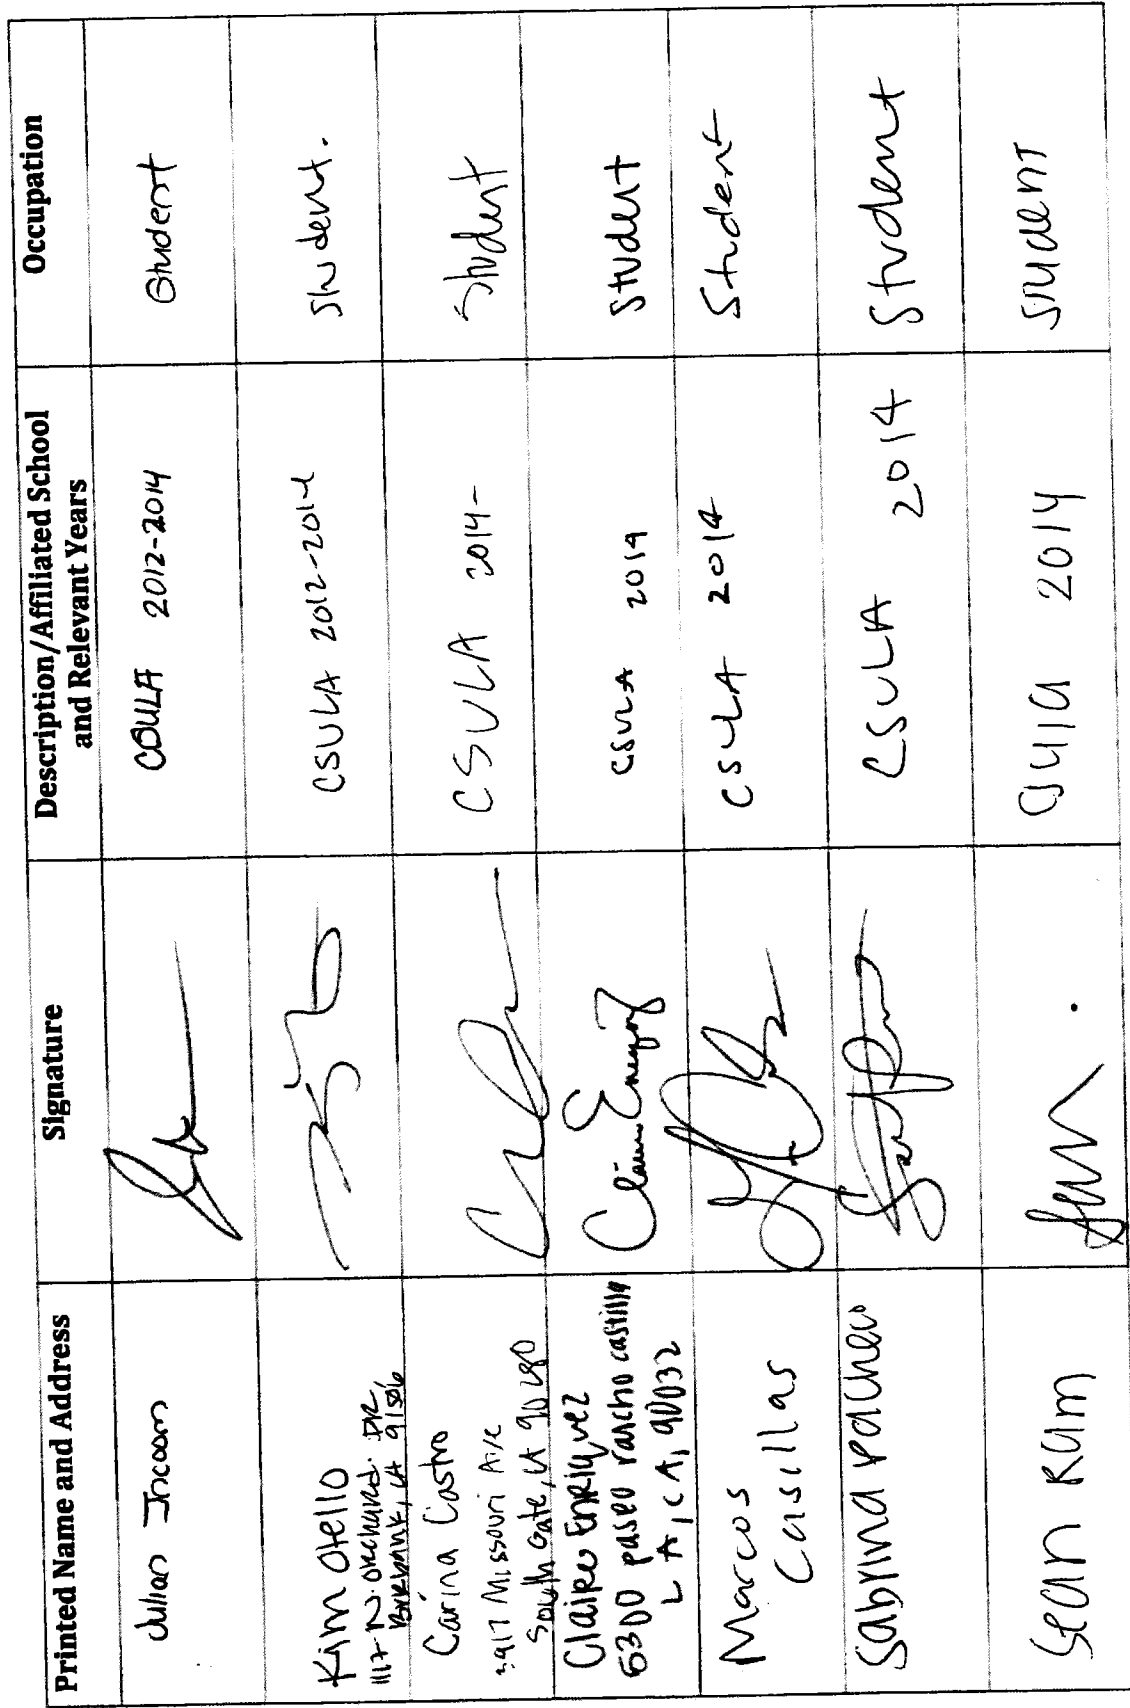 Printed Name and Address
Signature
Description/Affiliated School
and Relevant Years
Occupation
Julian Incoom
COULA 2012-2014
Student
Kim Otello
1117 N. Orchard DR,
Burbank, CA 91506
CSULA 2012-2014
Student.
Carina Castro
3917 Missouri Ave
South Gate, CA 90280
CSULA 2014-
Student
Claire Enriquez
5300 paseo rancho castilla
LA, CA, 90032
Claire Enriquez
CSULA 2014
Student
Marcos
Casillas
CSULA 2014
Student
Sabrina Pacheco
CSULA 2014
Student
Sean Ram
2014
Student